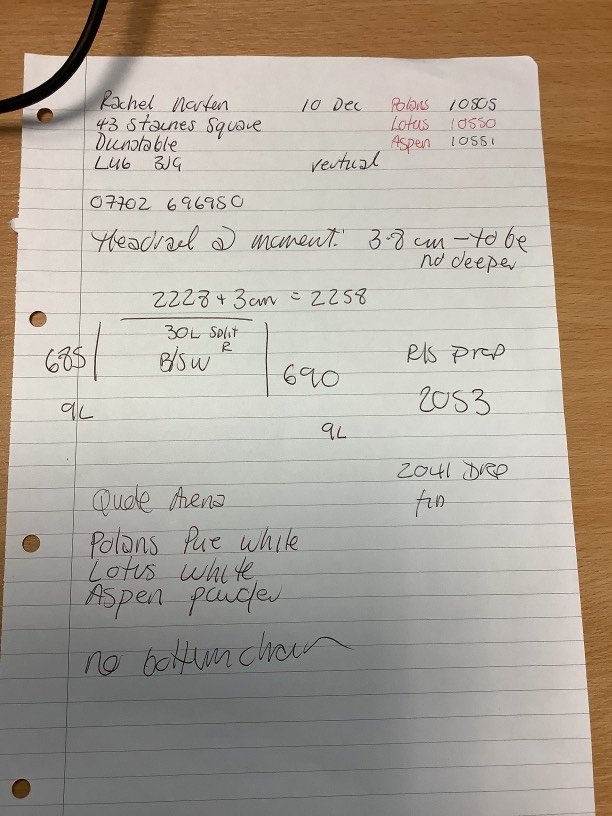 Rachel Marten 10 Dec Polans 10505
43 Staines Square Lotus 10550
Dunstable Aspen 10551
LU6 3JG vertical
07702 696950
Headrail @ moment: 3.8 cm - to be
no deeper
2228 + 3cm = 2258
30L Split
R
B/SW
685
690
R/S Drop
2053
9L
9L
2041 Drop
fin
Quote Arena
Polans Pure white
Lotus white
Aspen powder
no bottom chain